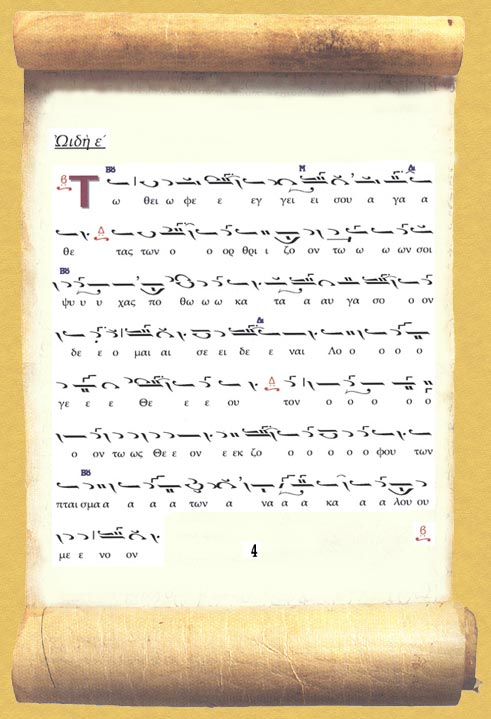 ᾨδὴ ε΄
Τ ω θει ω φε ε εγ γει ει σου α γα α
θε τας των ο ο ορ θρι ι ζο ον τω ω ω ων σοι
ψυ υ υ χας πο θω ω ω κα τα α αυ γα σο ο ον
δε ε ο μαι αι σε ει δε ε ναι Λο ο ο ο ο
γε ε ε Θε ε ε ου τον ο ο ο ο ο
ο ον τω ως Θε ε ον ε εκ ζο ο ο ο ο ο φου των
πται σμα α α α α των α να α α κα α α λου ου
με ε νο ον
4